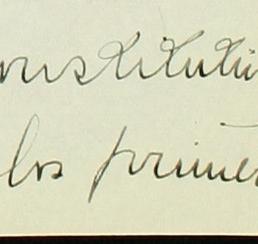 onstitutu
los primer